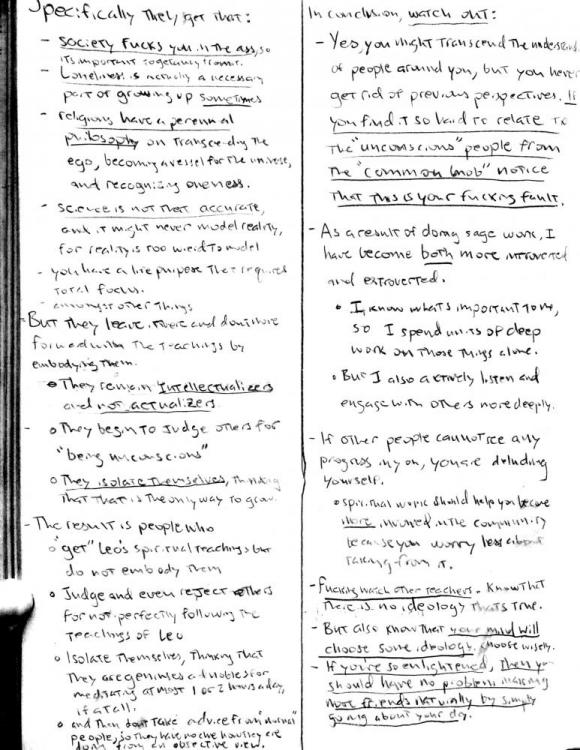 Specifically they get that:
- society fucks you in the ass, so
its important to get away from it.
- Loneliness is actually a necessary
part of growing up sometimes
- religions have a perennial
philosophy on transcending the
ego, becoming a vessel for the universe,
and recognizing oneness.
- science is not that accurate,
and it might never model reality,
for reality is too weird to model
- you have a life purpose that requires
total focus.
- amongst other things
- But they leave it there and dont move
forward with the teachings by
embodying them.
• They remain Intellectualizers
and not actualizers.
• They begin to judge others for
"being unconscious"
• They isolate themselves, thinking
that that is the only way to grow.
- The result is people who
• "get" Leo's spiritual teachings but
do not embody them
• Judge and even reject others
for not perfectly following the
teachings of Leo
• Isolate themselves, thinking that
they are geniuses and nobles for
meditating at most 1 or 2 hours a day,
if at all.
• and then don't take advice from "normal"
people, so they have no clue how they are
doing from an objective view.
In conclusion, watch out:
- Yes, you might transcend the understand
of people around you, but you never
get rid of previous perspectives. If
you find it so hard to relate to
the "unconscious" people from
the "common mob" notice
that this is your fucking fault.
- As a result of doing sage work, I
have become both more introverted
and extroverted.
• I know what's important to me,
so I spend units of deep
work on those things alone.
• But I also actively listen and
engage with others more deeply.
- If other people cannot see any
progress in you, you are deluding
yourself.
• spiritual work should help you become
more involved in the community
because you worry less about
taking from it.
- Fucking watch other teachers. Know that
there is no ideology thats true.
- But also know that your mind will
choose some ideology. choose wisely.
- If you're so enlightened, then you
should have no problem making
more friends naturally by simply
going about your day.